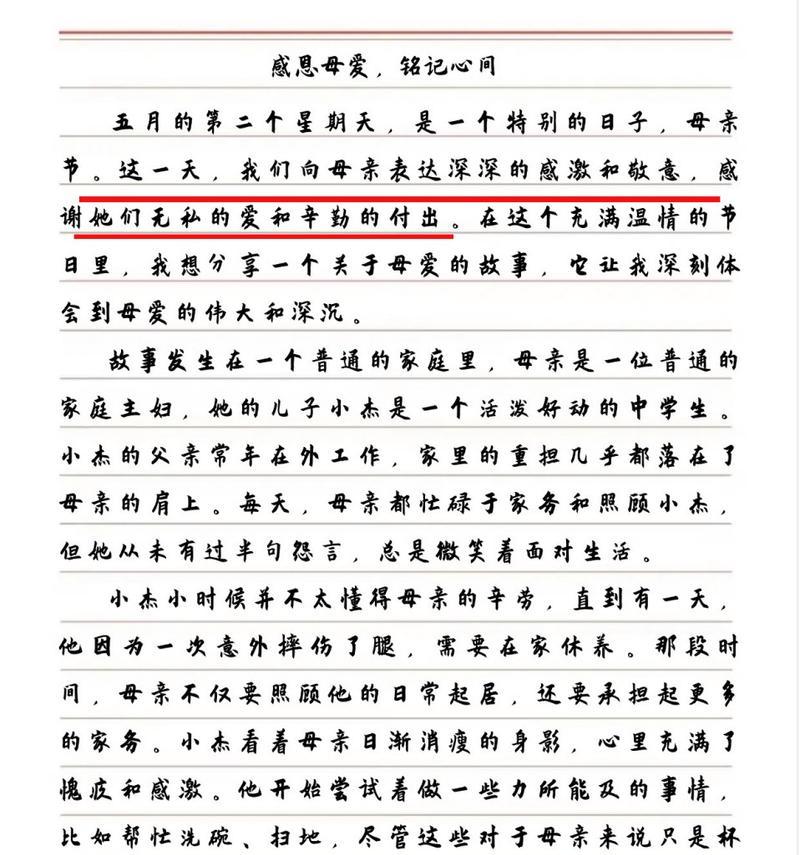 感恩母爱，铭记心间
五月的第二个星期天，是一个特别的日子，母亲
节。这一天，我们向母亲表达深深的感激和敬意，感
谢她们无私的爱和辛勤的付出。在这个充满温情的节
日里，我想分享一个关于母爱的故事，它让我深刻体
会到母爱的伟大和深沉。
故事发生在一个普通的家庭里，母亲是一位普通的
家庭主妇，她的儿子小杰是一个活泼好动的中学生。
小杰的父亲常年在外工作，家里的重担几乎都落在了
母亲的肩上。每天，母亲都忙碌于家务和照顾小杰，
但她从未有过半句怨言，总是微笑着面对生活。
小杰小时候并不太懂得母亲的辛劳，直到有一天，
他因为一次意外摔伤了腿，需要在家休养。那段时
间，母亲不仅要照顾他的日常起居，还要承担起更多
的家务。小杰看着母亲日渐消瘦的身影，心里充满了
愧疚和感激。他开始尝试着做一些力所能及的事情，
比如帮忙洗碗、扫地，尽管这些对于母亲来说只是杯